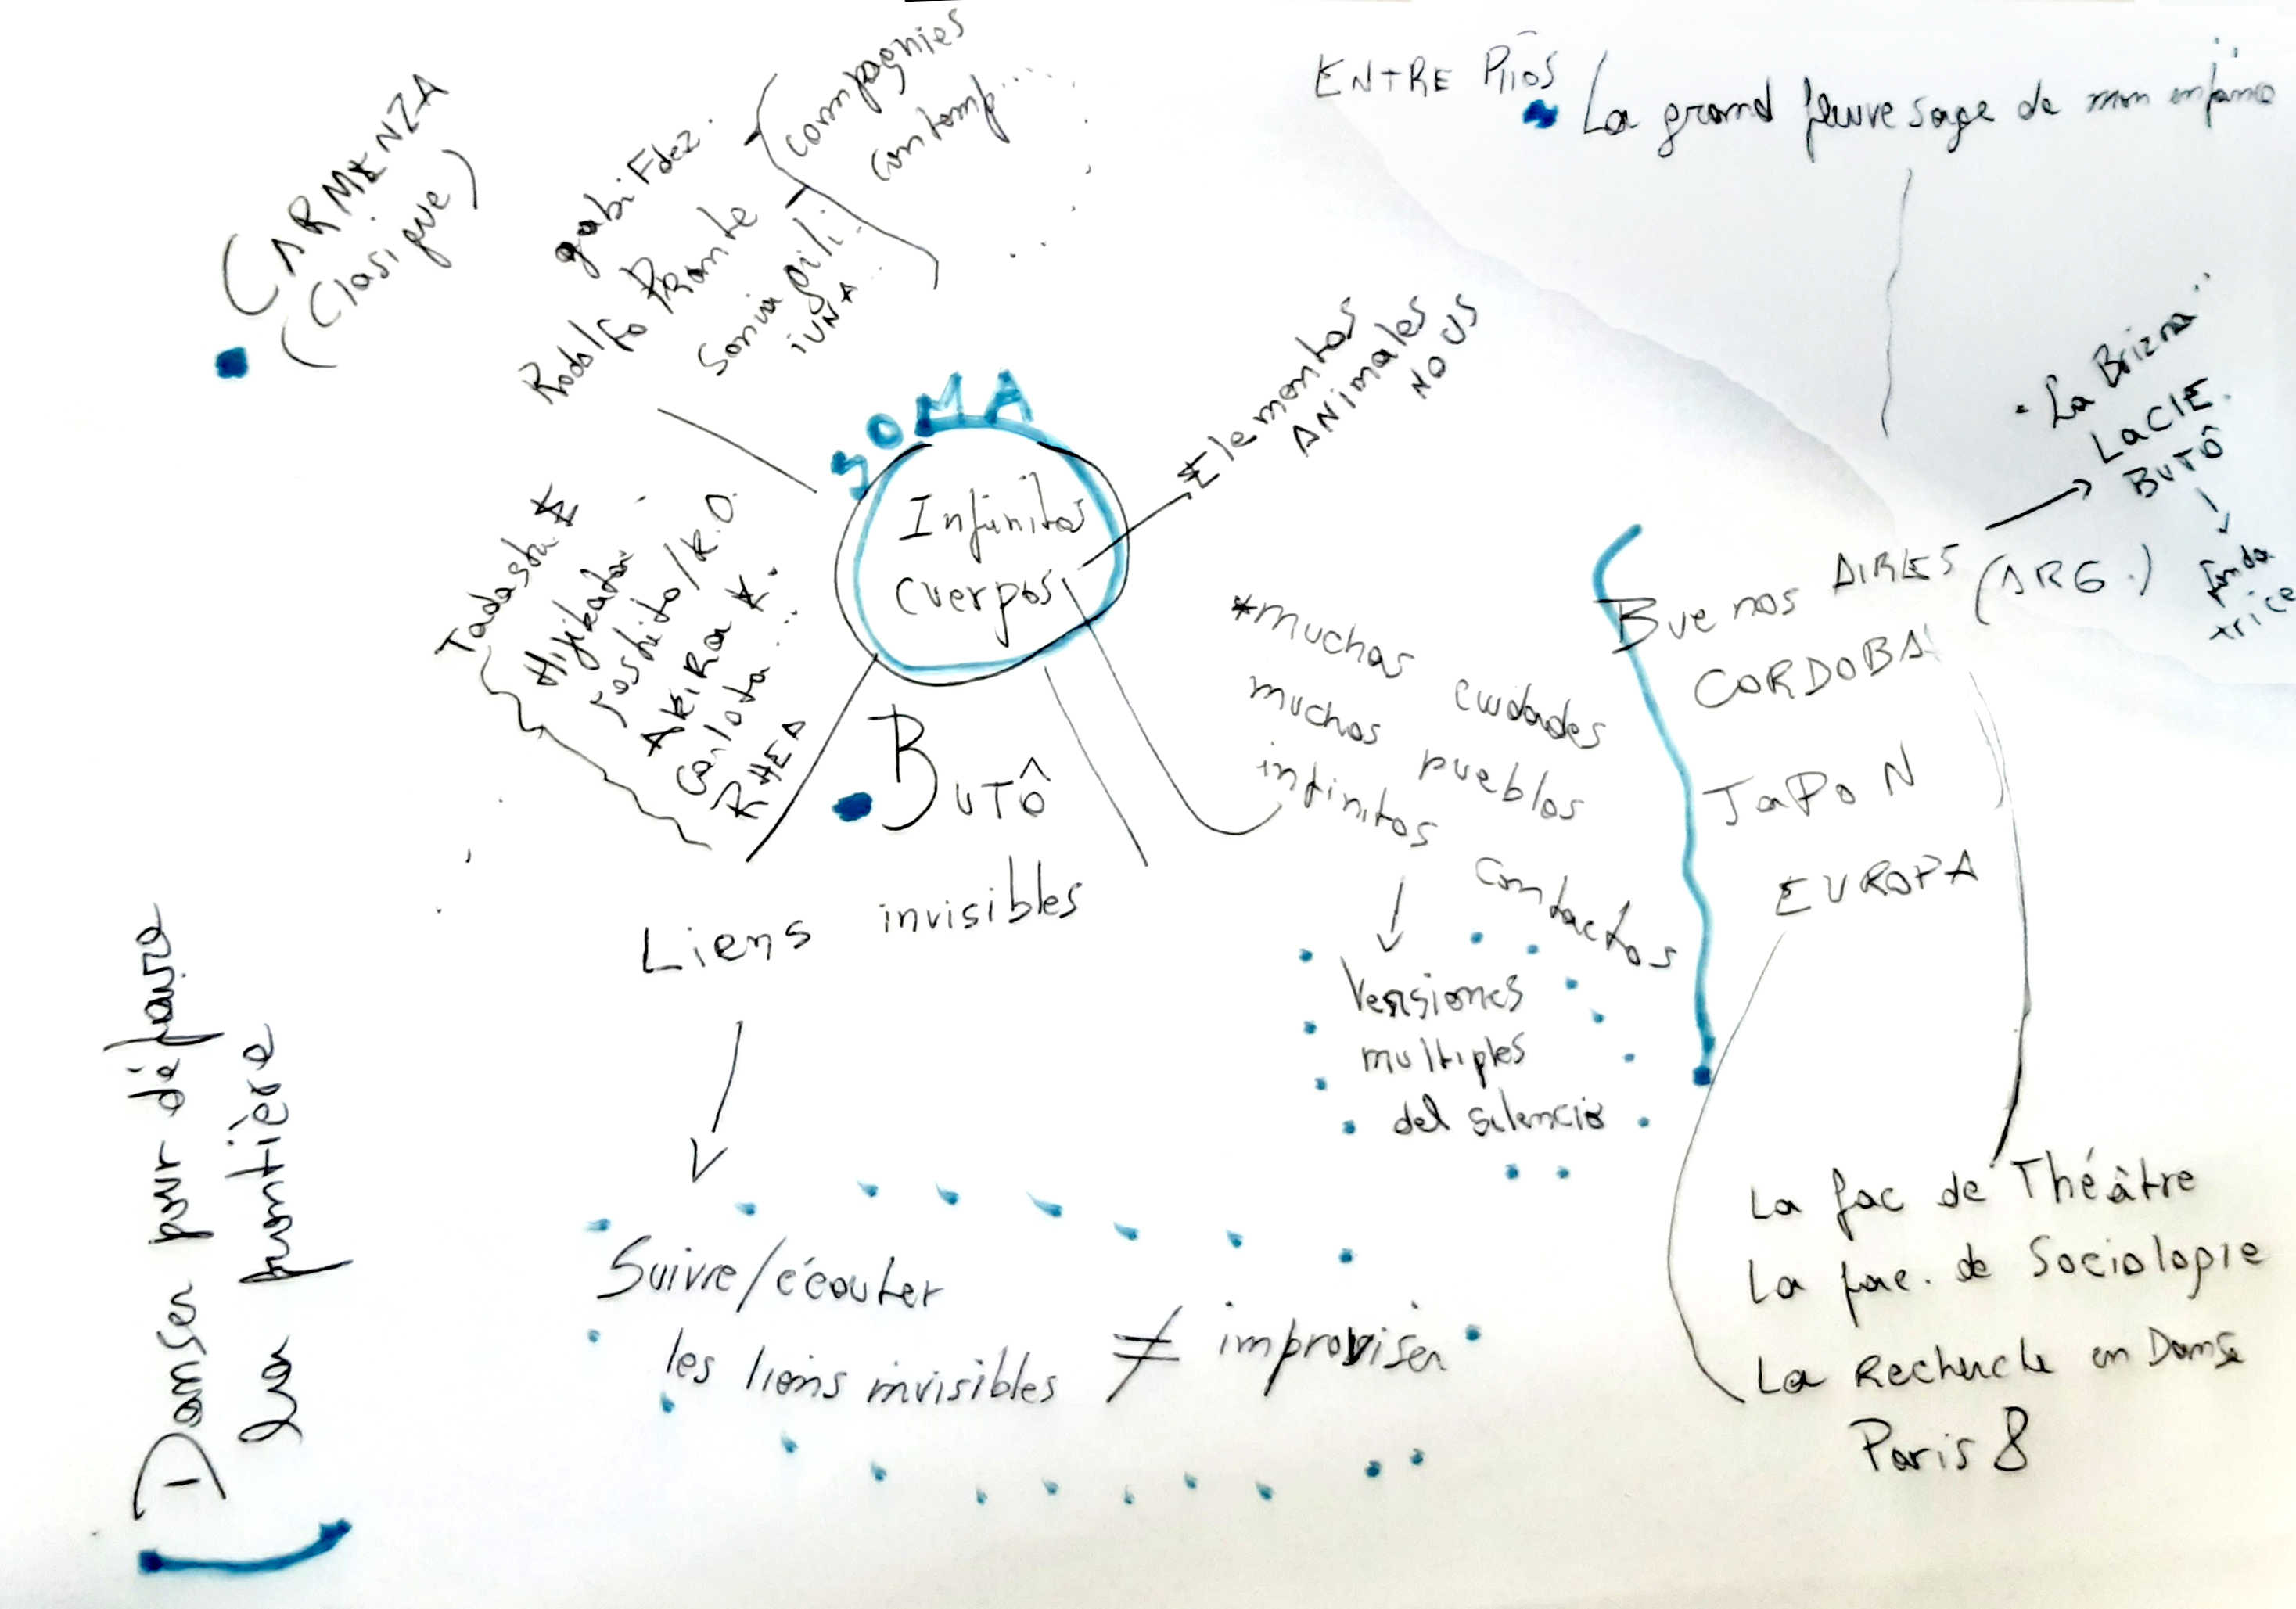 CARMENZA
(Clasique)
gabi Fdez.
Rodolfo Prante
Sonia gili.
IUNA...
compagnies
contemp....
ENTRE RIOS
La grand fleuve sage de mon enfance
SOMA
Infinitos
cuerpos
Elementos
ANimales
NOUS
Tadashi E
Hijikata
Yoshito/K.O.
AKIRA K.
Carlota...
RHEA
BUTÔ
Liens invisibles
*muchas cuidades
muchos pueblos
infinitos contactos
Versiones
multiples
del silencio
Buenos AIRES (ARG.)
CORDOBA
JaPoN
EUROPA
"La Brizna"
La CIE.
BUTÔ
fonda
trice
Suivre/écouter
les liens invisibles ≠ improviser
La fac de Théâtre
La fac. de Sociologie
La Recherche en Danse
Paris 8
Danser pour défaire
la frontière